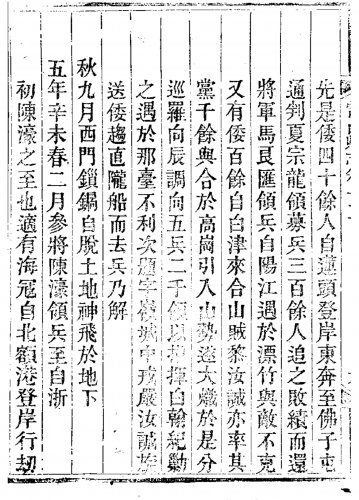 先是倭四十餘人自蓮頭登岸東奔至佛子屯
通判夏宗龍領募兵三百餘人追之敗績而還
將軍馬良匯領兵自陽江遇於漂竹與敵不克
又有倭百餘自白津來合山賊黎汝誠亦率其
黨千餘與合於高崗引入山勢遂大熾於是分
巡羅向辰調向五兵二千領以指揮白翰紀勦
之遇於那臺不利次題字嶺城中戒嚴汝誠族
送倭趨直隴船而去兵乃解
秋九月西門鎖鍋自脫土地神飛於地下
五年辛未春二月參將陳濠領兵至自浙
初陳濠之至也適有海寇自北額港登岸行劫